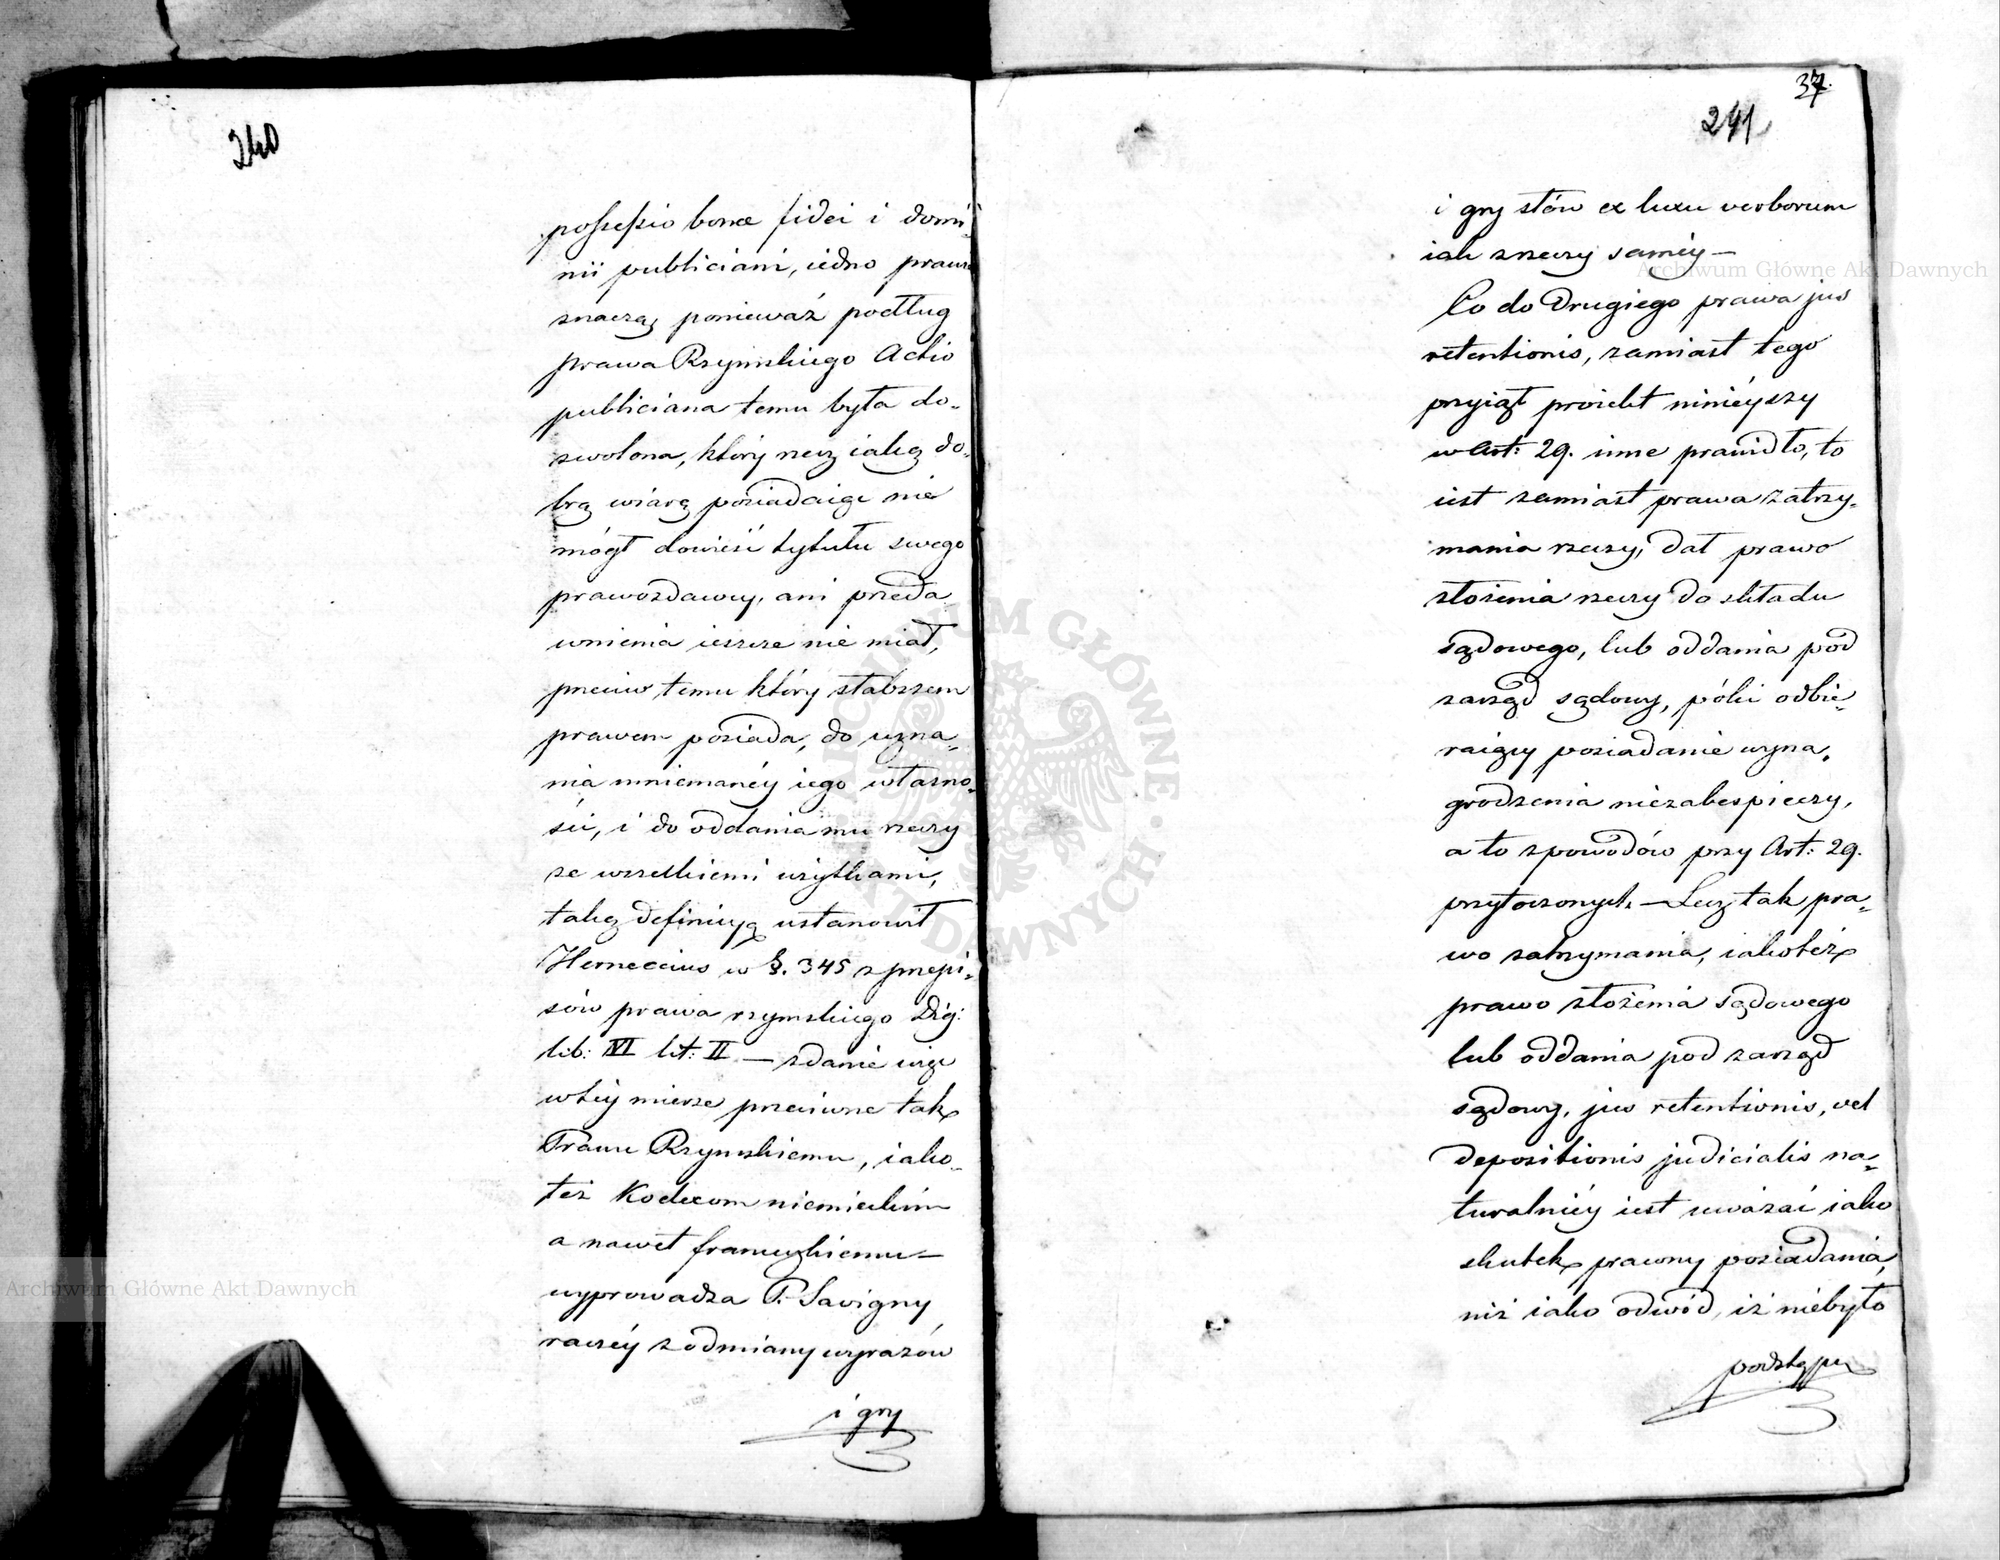 240
possessio bonæ fidei i domi-
nii publiciani, iedno prawie
znaczą, ponieważ podług
prawa Rzymskiego Actio
publiciana temu była do-
zwolona, który rzecz iaką do-
brą wiarą posiadaiąc nie
mógł dowieść tytułu swego
prawozdawcy, ani przeda
wnienia ieszcze nie miał,
przeciw temu który słabszem
prawem posiada, do uzna-
nia mniemanéy iego własno-
ści, i do oddania mu rzeczy
ze wszelkiemi użytkami,
taką definicyą ustanowił
Heineccius w §. 345 z przepi-
sów prawa rzymskiego Dig:
lib: VI tit: II — zdanie więc
wtéy mierze przeciwne tak
Prawu Rzymskiemu, iako-
też Kodexom niemieckim
a nawet francuzkiemu —
wyprowadza P. Savigny
raczéy z odmiany wyrazów
i gry
37.
241
i gry słów ex luxu verborum
iak z rzeczy saméy —
Co do drugiego prawa jus
retentionis, zamiast tego
przyiął proiekt ninieyszy
w Art: 29. inne prawidło, to
iest zamiast prawa zatrzy-
mania rzeczy, dał prawo
złożenia rzeczy do składu
sądowego, lub oddania pod
zarząd sądowy, póki odbie-
raiący posiadanie wyna-
grodzenia niezabespieczy,
a to z powodów przy Art: 29.
przytoczonych. — Lecz tak pra-
wo zatrzymania, iakoteż
prawo złożenia sądowego
lub oddania pod zarząd
sądowy, jus retentionis, vel
depositionis judicialis na-
turalniéy iest uważać iako
skutek prawny posiadania,
niż iako odwód, iż niebyło
podstępu
Archiwum Główne Akt Dawnych
Archiwum Główne Akt Dawnych
ARCHIWUM GŁÓWNE AKT DAWNYCH